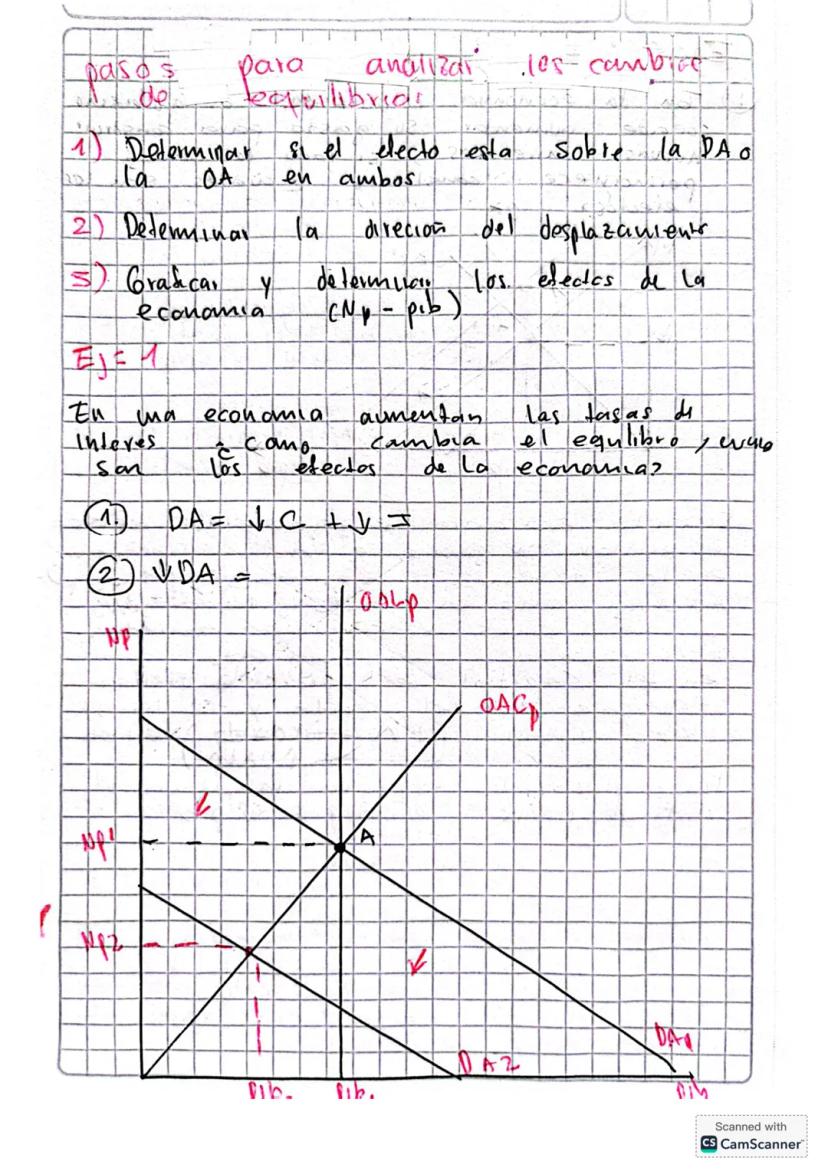 pasos para analizar los cambios
de eequilibrios
1) Determinar si el efecto esta sobre la DA o
la OA en ambos
2) Determinar la direcion del desplazamiento
3) Graficar y determinar los efectos de la
economia (Np - pib)
Ej = 1
En una economia aumentan las tasas de
interés ¿como cambia el equilibro,
son los efectos de la economia?
1.) DA = ↓ C + ↓ I
2.) ↓ DA =
OALp
Np
OACp
Np1
A
Np2
DA1
DA2
Pib2
Pib1
Pib
Scanned with
CS CamScanner